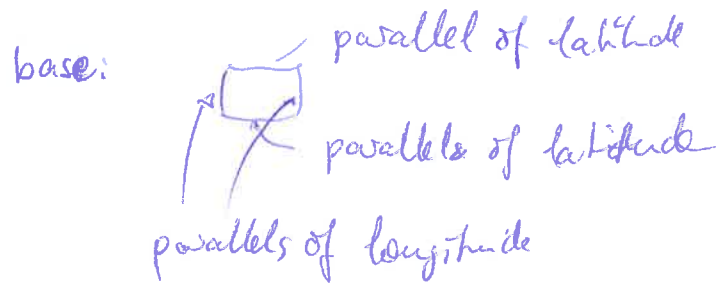 parallel of latitude
base:
parallels of latitude
parallels of longitude